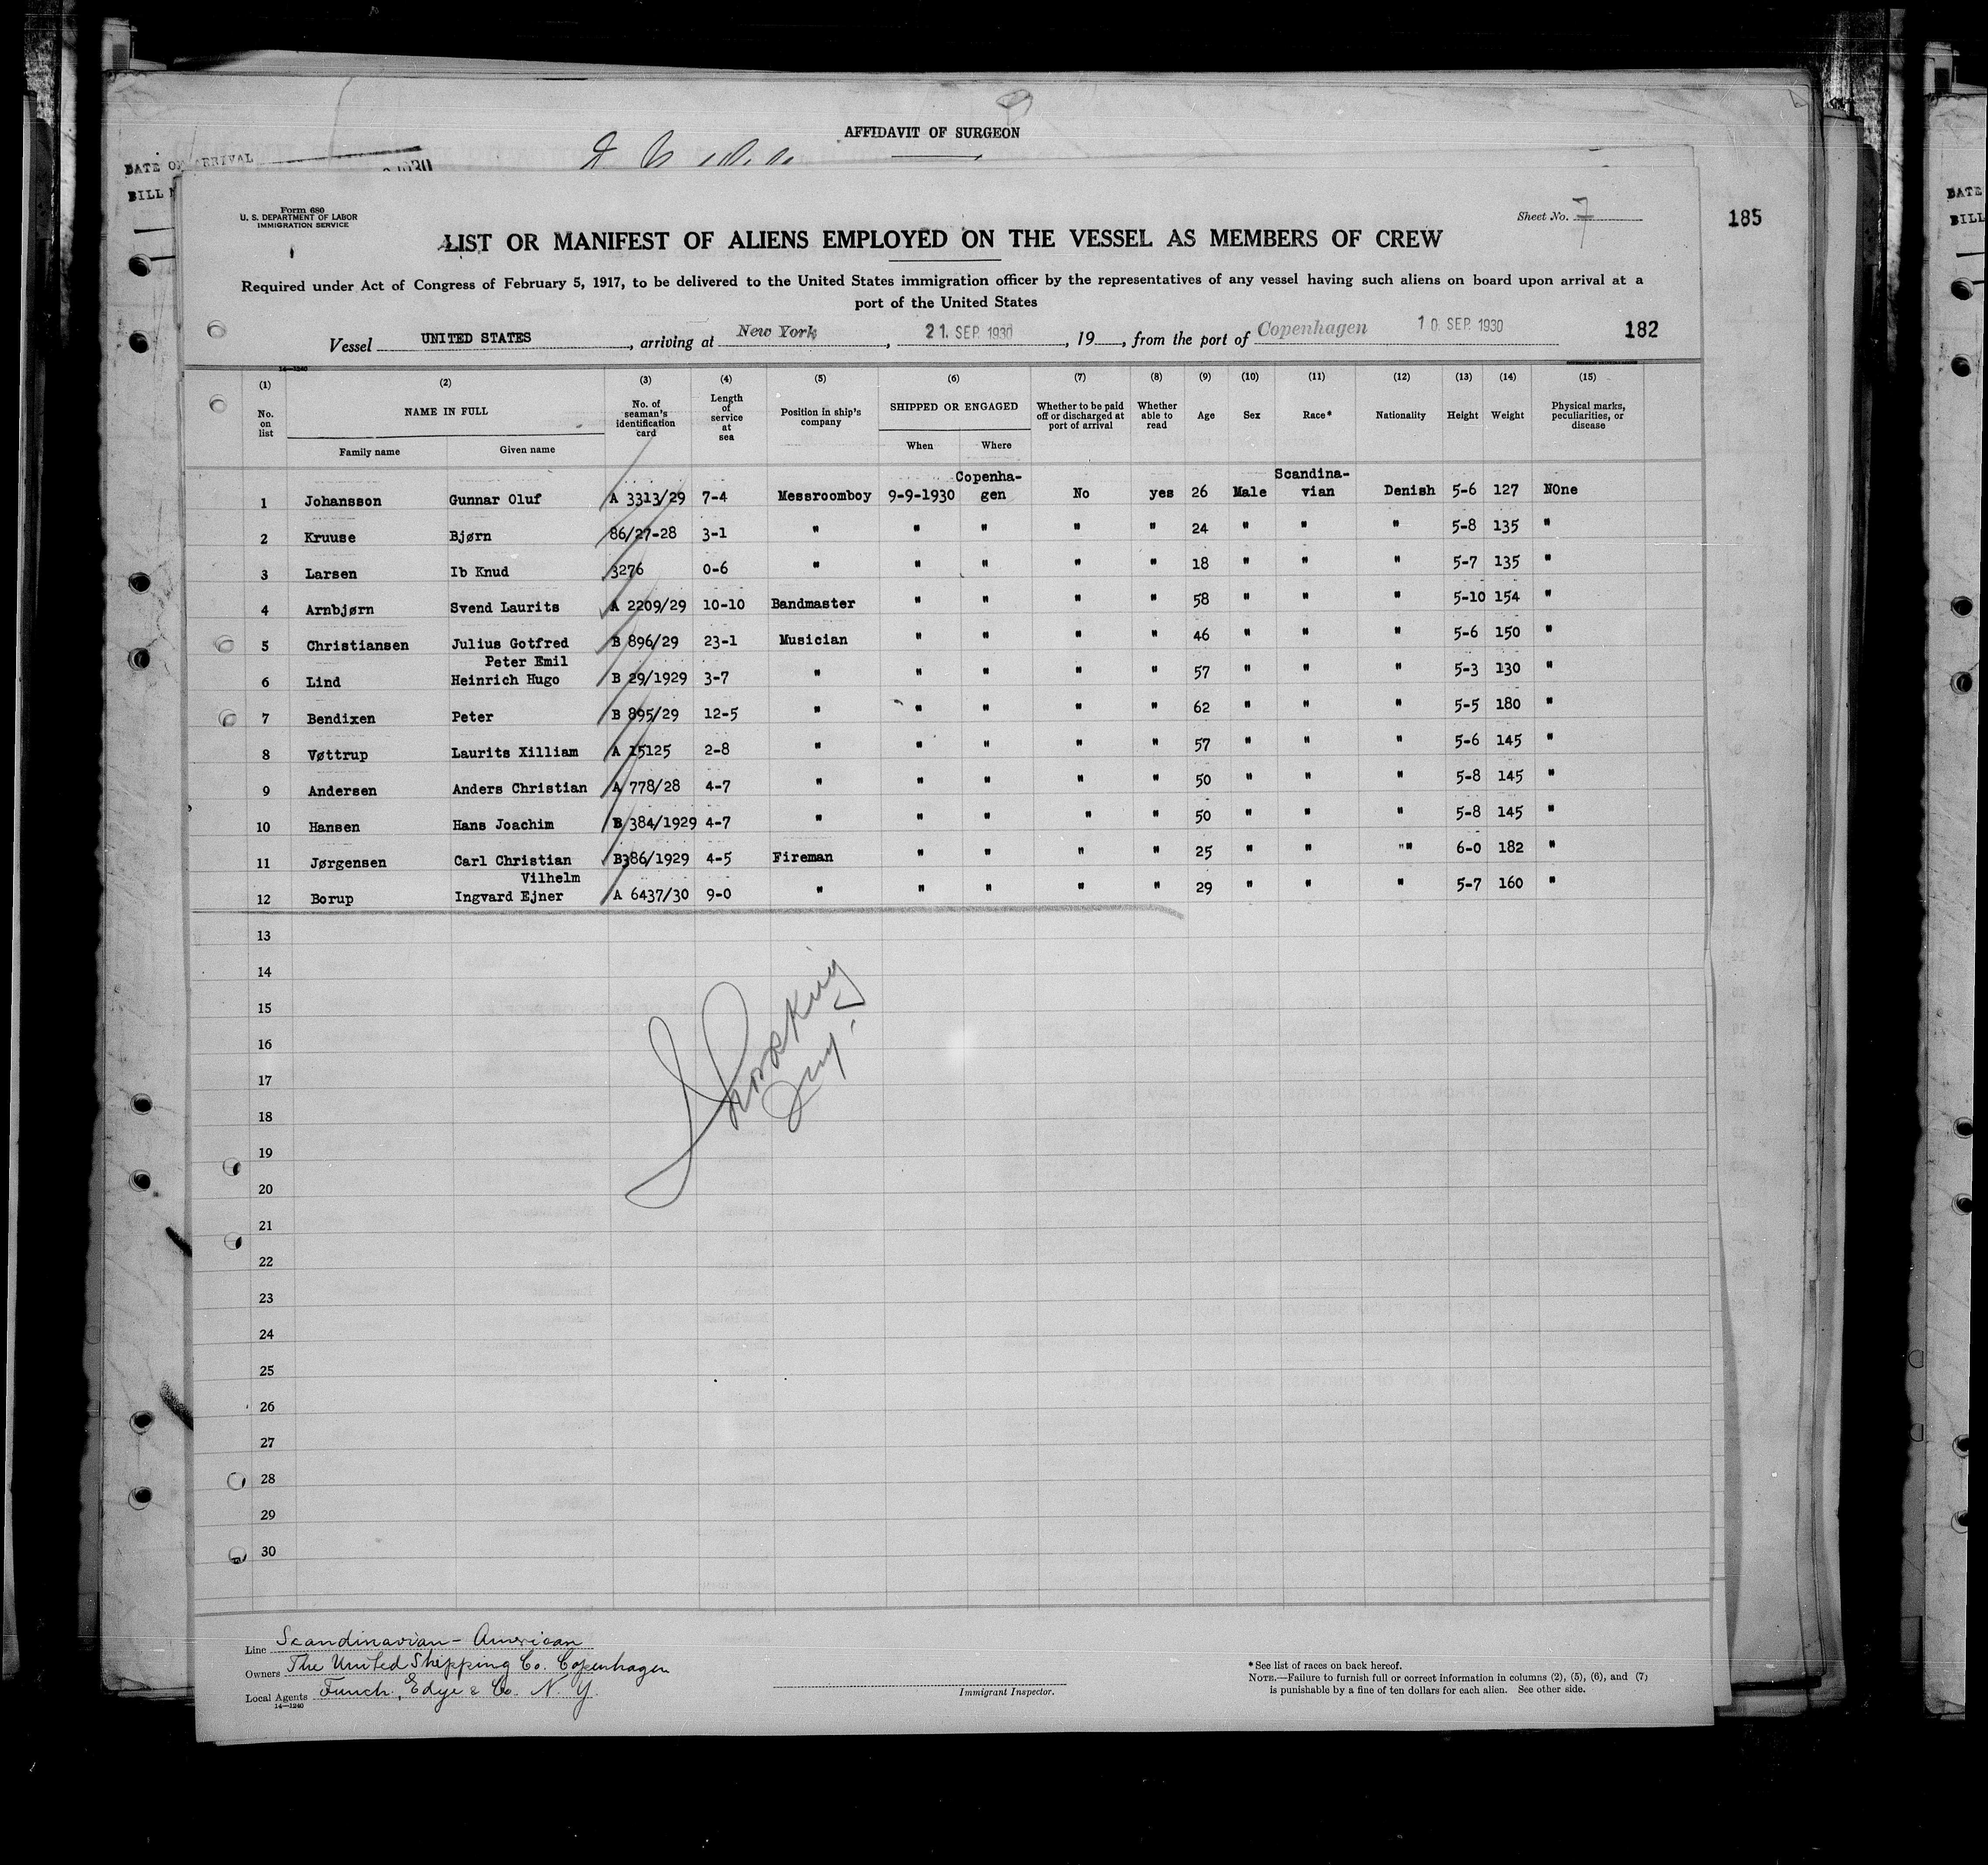 AFFIDAVIT OF SURGEON
DATE OF ARRIVAL
BILL
Form 680
U. S. DEPARTMENT OF LABOR
IMMIGRATION SERVICE
Sheet No. 7
185
LIST OR MANIFEST OF ALIENS EMPLOYED ON THE VESSEL AS MEMBERS OF CREW
Required under Act of Congress of February 5, 1917, to be delivered to the United States immigration officer by the representatives of any vessel having such aliens on board upon arrival at a
port of the United States
Vessel UNITED STATES, arriving at New York, 21. SEP. 1930, 19, from the port of Copenhagen 10. SEP. 1930 182
14—1240
(1) (2) (3) (4) (5) (6) (7) (8) (9) (10) (11) (12) (13) (14) (15)
No. on list NAME IN FULL Family name Given name No. of seaman's identification card Length of service at sea Position in ship's company SHIPPED OR ENGAGED When Where Whether to be paid off or discharged at port of arrival Whether able to read Age Sex Race* Nationality Height Weight Physical marks, peculiarities, or disease
1 Johansson Gunnar Oluf A 3313/29 7-4 Messroomboy 9-9-1930 Copenha-gen No yes 26 Male Scandina-vian Denish 5-6 127 NOne
2 Kruuse Bjørn 86/27-28 3-1 " " " " " 24 " " " 5-8 135 "
3 Larsen Ib Knud 3276 0-6 " " " " " 18 " " " 5-7 135 "
4 Arnbjørn Svend Laurits A 2209/29 10-10 Bandmaster " " " " 58 " " " 5-10 154 "
5 Christiansen Julius Gotfred B 896/29 23-1 Musician " " " " 46 " " " 5-6 150 "
6 Lind Peter Emil Heinrich Hugo B 29/1929 3-7 " " " " " 57 " " " 5-3 130 "
7 Bendixen Peter B 895/29 12-5 " " " " " 62 " " " 5-5 180 "
8 Vøttrup Laurits Xilliam A 15125 2-8 " " " " " 57 " " " 5-6 145 "
9 Andersen Anders Christian A 778/28 4-7 " " " " " 50 " " " 5-8 145 "
10 Hansen Hans Joachim B 384/1929 4-7 " " " " " 50 " " " 5-8 145 "
11 Jørgensen Carl Christian B386/1929 4-5 Fireman " " " " 25 " " "" 6-0 182 "
12 Borup Vilhelm Ingvard Ejner A 6437/30 9-0 " " " " " 29 " " " 5-7 160 "
13
14
15
16
17
18
19
20
21
22
23
24
25
26
27
28
29
30
Line Scandinavian-American
Owners The United Shipping Co. Copenhagen
Local Agents Funch, Edye & Co. N. Y.
14—1240
Immigrant Inspector.
*See list of races on back hereof.
NOTE.—Failure to furnish full or correct information in columns (2), (5), (6), and (7)
is punishable by a fine of ten dollars for each alien. See other side.
DATE
BILL